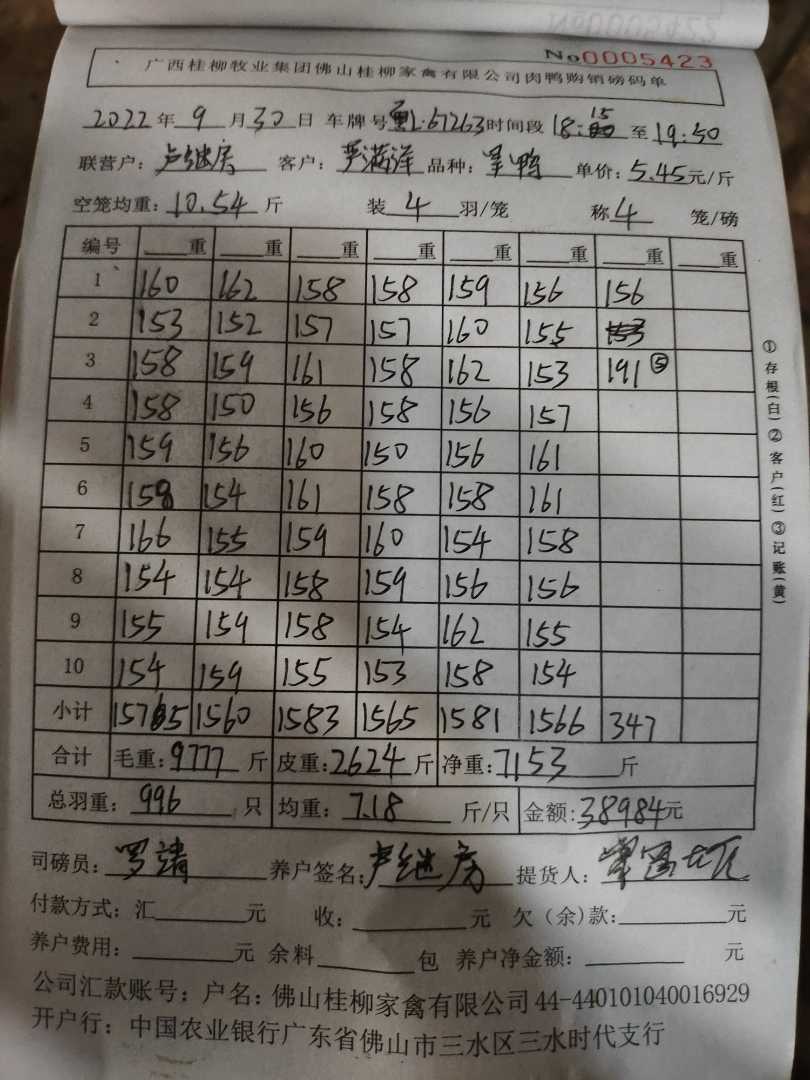 No0005423
广西桂柳牧业集团佛山桂柳家禽有限公司肉鸭购销磅码单
2022年9月30日 车牌号 L·61263 时间段 18:15 至 19:50
联营户:卢继房 客户:严满洋 品种: 鸭 单价:5.45元/斤
空笼均重:10.54斤 装4羽/笼 称4笼/磅
编号 重 重 重 重 重 重 重 重
1 160 162 158 158 159 156 156
2 153 152 157 157 160 155 153
3 158 159 161 158 162 153 191⑤
4 158 150 156 158 156 157
5 159 156 160 150 156 161
6 158 154 161 158 158 161
7 166 155 159 160 154 158
8 154 154 158 159 156 156
9 155 159 158 154 162 155
10 154 159 155 153 158 154
小计 1575 1560 1583 1565 1581 1566 347
合计 毛重:9777斤 皮重:2624斤 净重:7153斤
总羽重:996只 均重:7.18斤/只 金额:38984元
司磅员:罗靖 养户签名:卢继房 提货人:
付款方式:汇 元 收: 元 欠(余)款: 元
养户费用: 元 余料 包 养户净金额: 元
公司汇款账号:户名:佛山桂柳家禽有限公司 44-440101040016929
开户行:中国农业银行广东省佛山市三水区三水时代支行
①存根(白)②客户(红)③记账(黄)